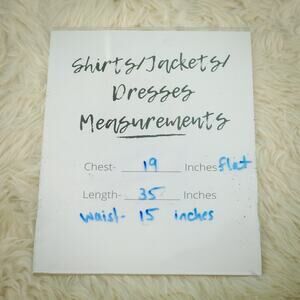 Shirts/Jackets/
Dresses
Measurements
Chest- 19 Inches flat
Length- 35 Inches
waist- 15 inches